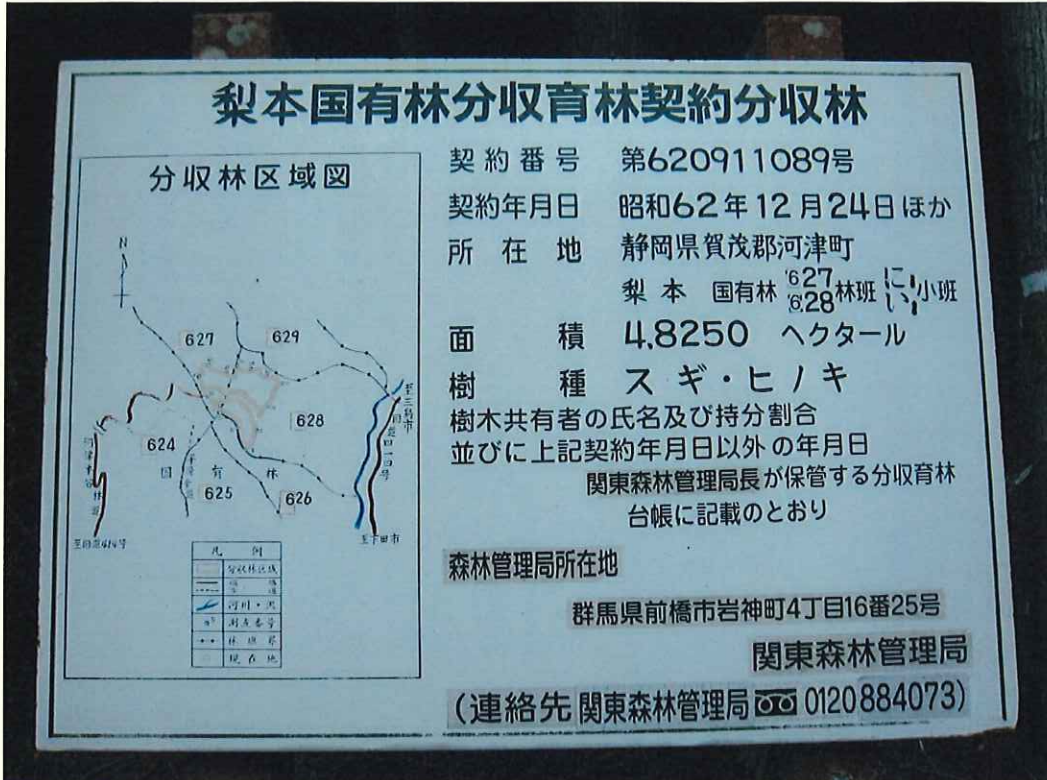 梨本国有林分収育林契約分収林
分収林区域図
N
627
629
628
624
国有林
625
626
至三島市
国道四一四号
至国道414号
至下田市
凡例
分収林区域
河川・沢
測点番号
林班界
現在地
契約番号 第620911089号
契約年月日 昭和62年12月24日ほか
所在地 静岡県賀茂郡河津町
梨本 国有林 627 林班 に 小班
628 い
面積 4.8250 ヘクタール
樹種 スギ・ヒノキ
樹木共有者の氏名及び持分割合
並びに上記契約年月日以外の年月日
関東森林管理局長が保管する分収育林
台帳に記載のとおり
森林管理局所在地
群馬県前橋市岩神町4丁目16番25号
関東森林管理局
(連絡先 関東森林管理局 0120884073)